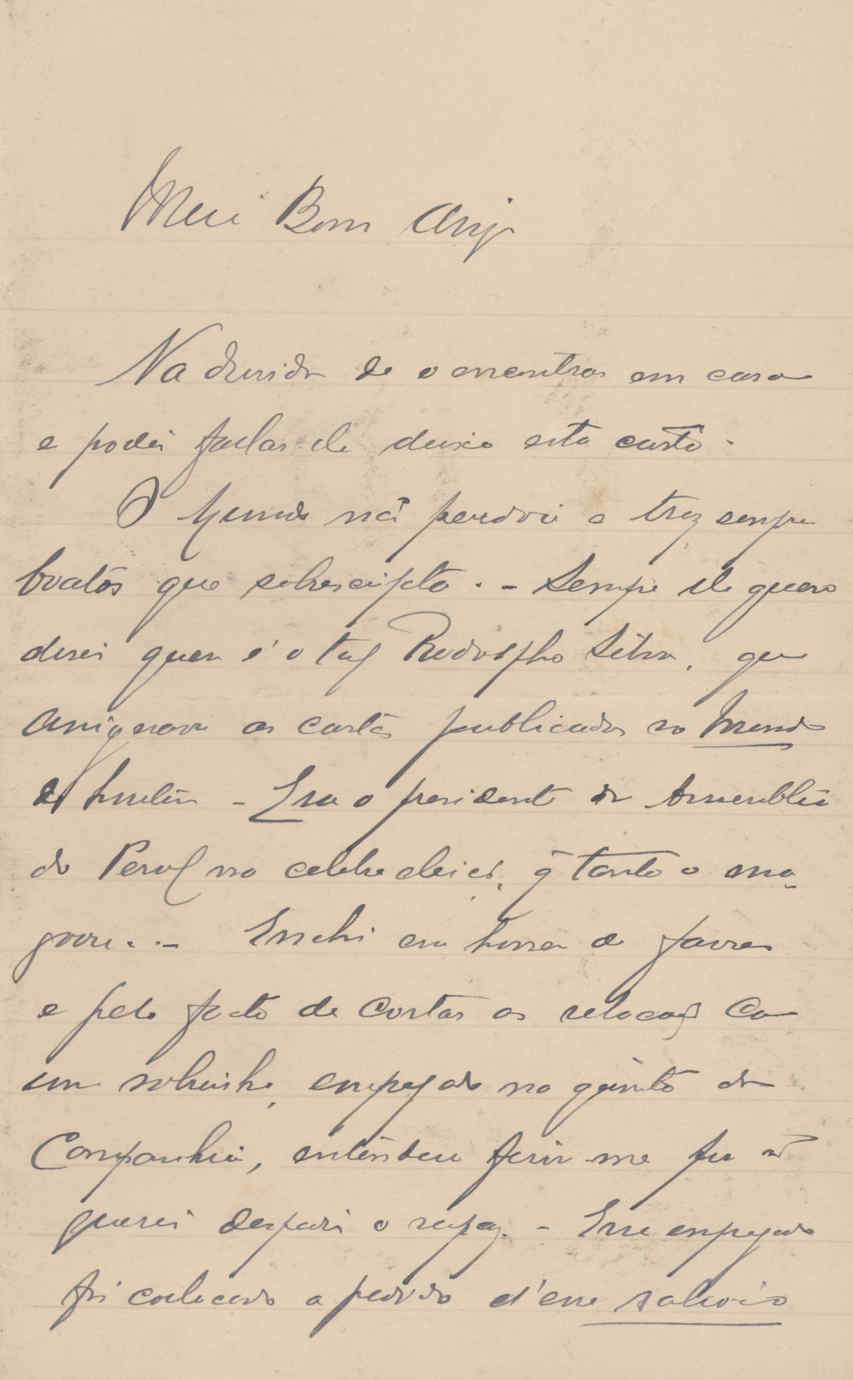 Meu Bom Amigo
Na duvida de o encontrar em casa
e poder fallar-lhe deixo esta carta.
O Mundo não perdoa e traz sempre
boatos que sobrescripto. - Sempre lhe quero
dizer quem é o tal Rodolpho Silva, que
assignava as cartas publicadas no Mundo
de hontem - Era o presidente da Assembleia
do Peral na celebre eleição, q tanto o ma-
goou. - Enchi em honra de favores
e pelo facto de cortar as relações com
um sobrinho, empregado na quinta da
Companhia, entendeu ferir-me por não
querer despedir o rapaz. - Esse empregado
foi collocado a pedido d'esse saloio